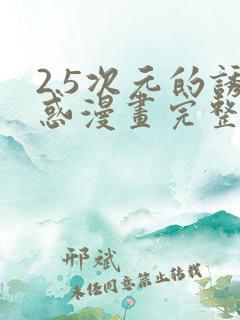 2.5次元的誘
惑漫畫完整
邢斌
未任同意禁止转载